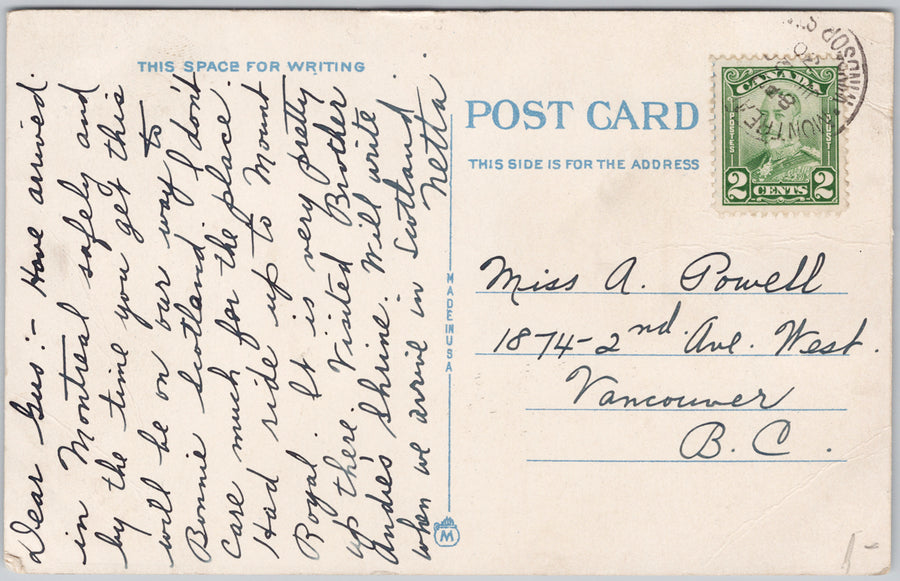 THIS SPACE FOR WRITING
Dear Gus:- Have arrived
in Montreal safely and
by the time you get this
will be on our way to
Bonnie Scotland. I don't
care much for the place.
Had ride up to Mount
Royal. It is very pretty
up there. Visited Brother
Andre's Shrine. Will write
when we arrive in Scotland.
Netta
MADE IN USA
M
POST CARD
THIS SIDE IS FOR THE ADDRESS
CANADA
POSTES
POST
2 CENTS 2
WINDSOR
MONTREAL
Miss A. Powell
1874-2nd. Ave. West.
Vancouver
B.C.
1-